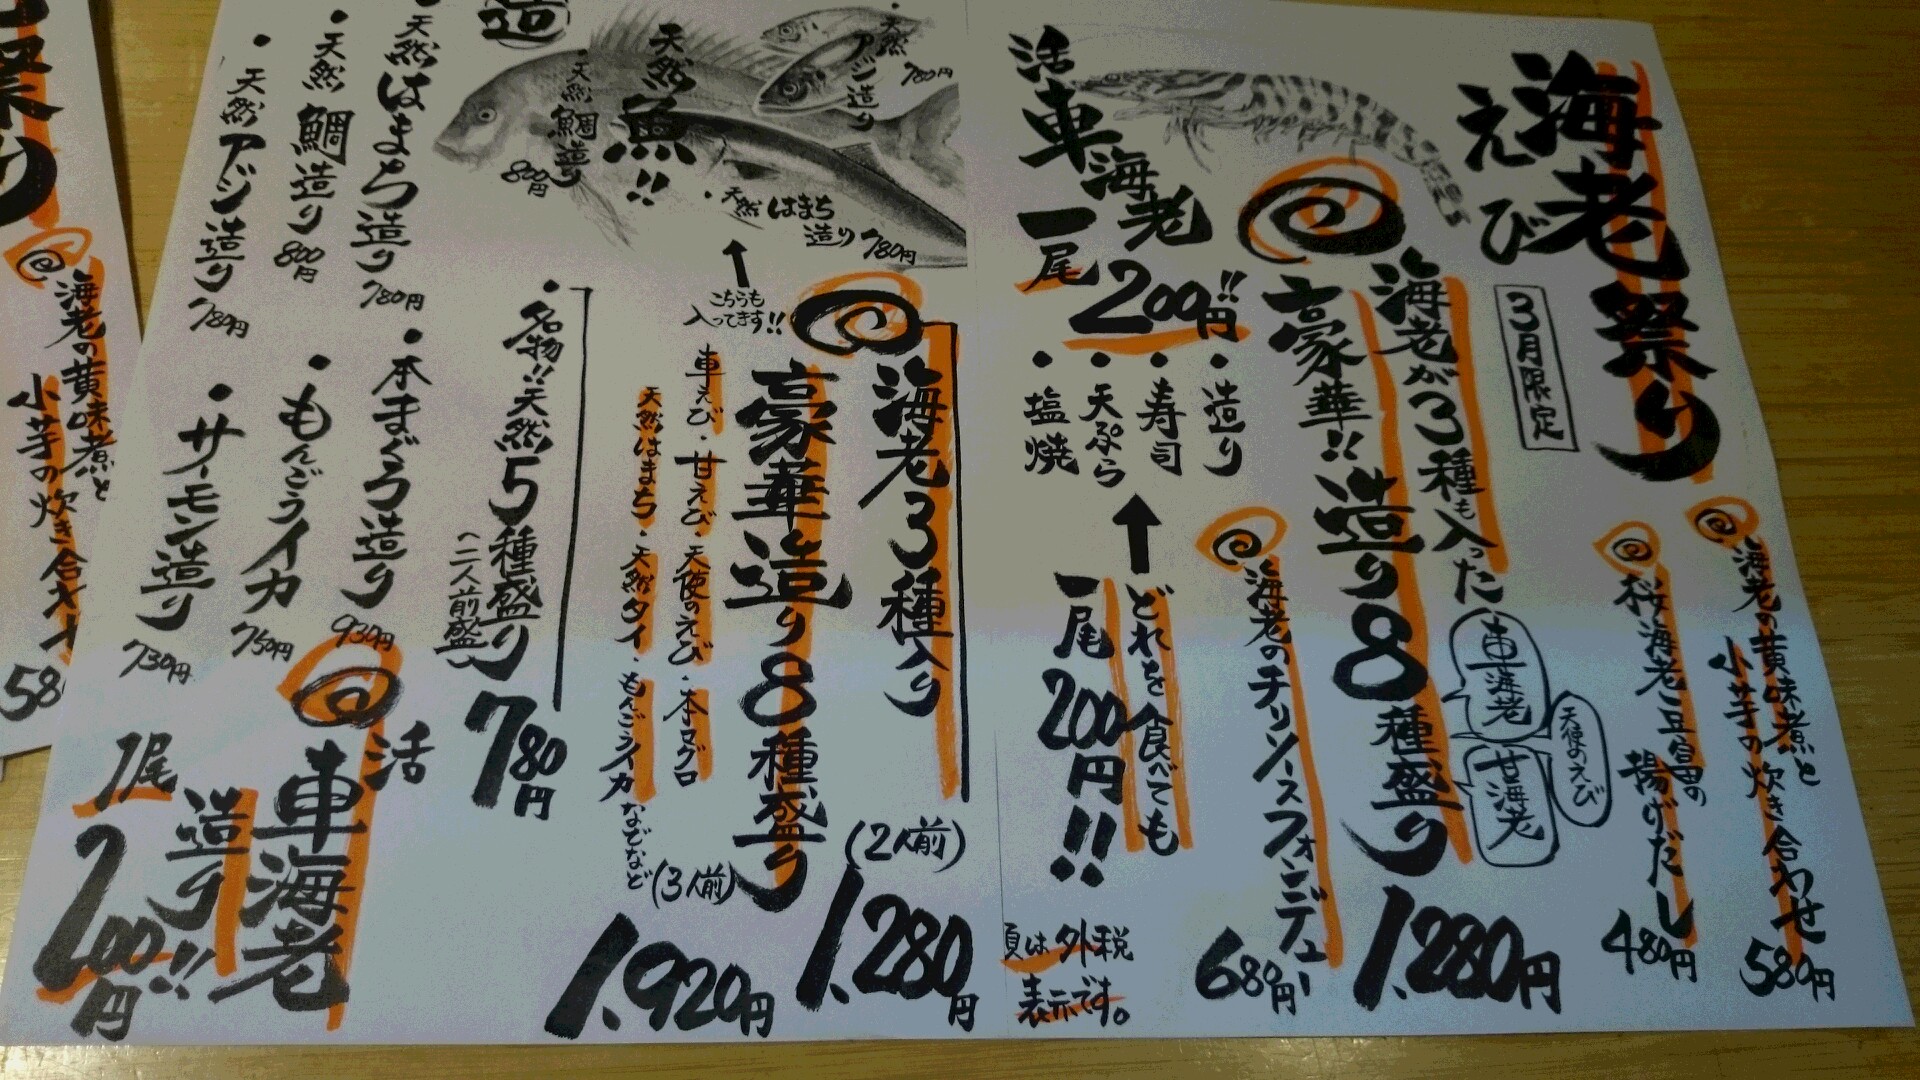 海老祭り
えび
3月限定
海老の黄味煮と
小芋の炊き合わせ
580円
桜海老と豆富の
揚げだし
480円
海老が3種も入った
豪華!!造り8種盛り
車海老
天使のえび
甘海老
1,280円
海老のチリソースフォンデュー
680円
活車海老
一尾200円!!
・造り
・寿司
・天ぷら
・塩焼
どれを食べても
一尾200円!!
頁は外税
表示です。
造
天然魚!!
・天然アジ造り
780円
・天然鯛造り
800円
・天然はまち造り
780円
こちらも
入ってます!!
海老3種入り
豪華造り8種盛り
(2人前)
1,280円
(3人前)
1,920円
車えび・甘えび・天使のえび・本マグロ
天然はまち・天然タイ・もんごうイカなどなど
・名物!!天然5種盛り
(二人前盛)
780円
・天然はまち造り
780円
・天然鯛造り
800円
・天然アジ造り
780円
・本まぐろ造り
930円
・もんごうイカ
750円
・サーモン造り
730円
活車海老
造り!!
1尾
200円
祭り
海老の黄味煮と
小芋の炊き合わせ
58